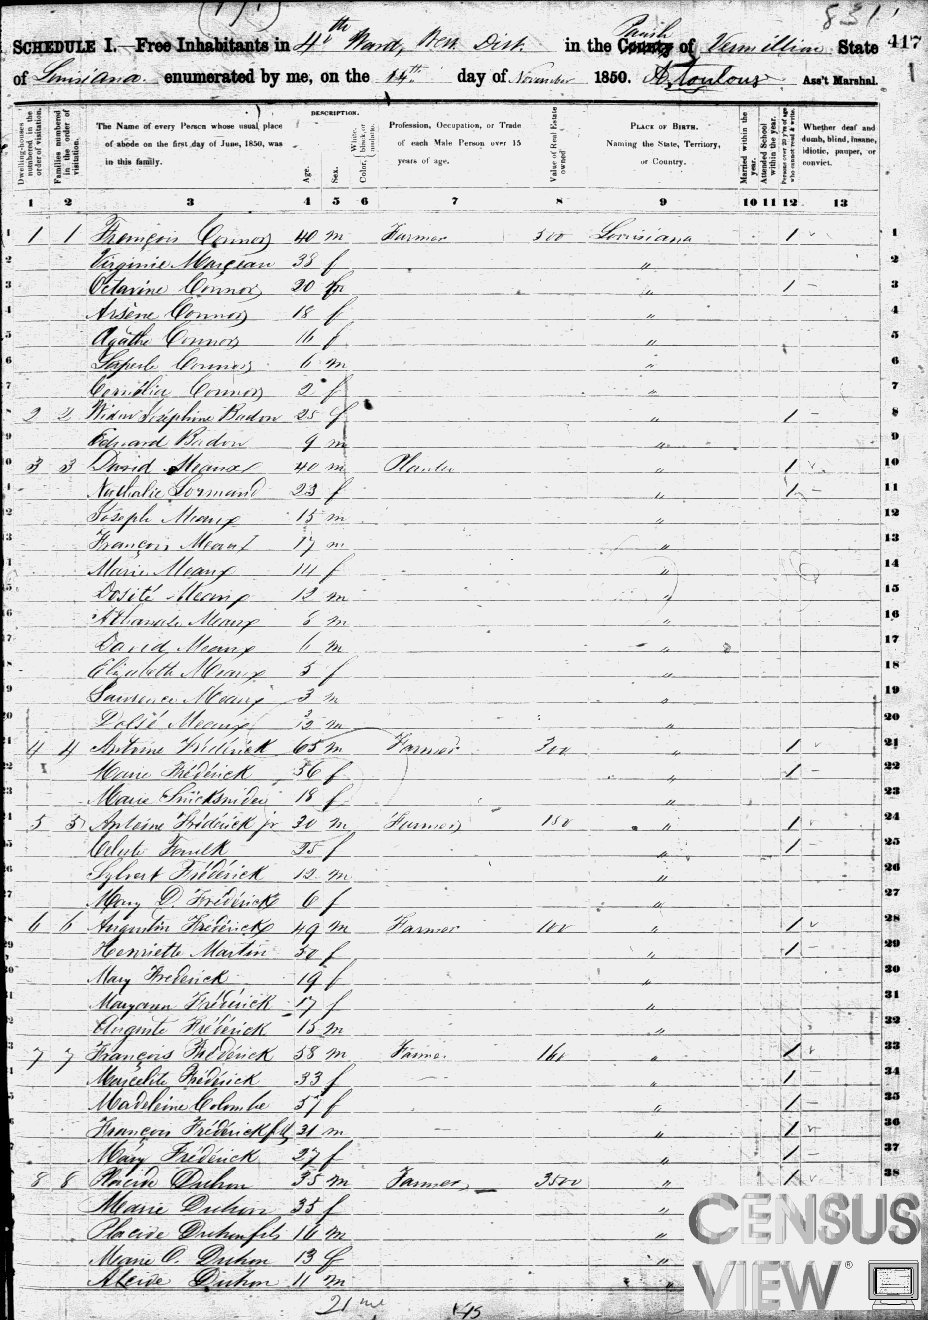 831
SCHEDULE I.—Free Inhabitants in 4th Ward, West Dist. in the County Parish of Vermillion State 417
of Louisiana. enumerated by me, on the 14th day of November 1850. A. Toulouse Ass't Marshal.
Dwelling-houses numbered in the order of visitation.
Families numbered in the order of visitation.
The Name of every Person whose usual place of abode on the first day of June, 1850, was in this family.
DESCRIPTION.
Age.
Sex.
Color, White, black, or mulatto.
Profession, Occupation, or Trade of each Male Person over 15 years of age.
Value of Real Estate owned
PLACE OF BIRTH. Naming the State, Territory, or Country.
Married within the year.
Attended School within the year.
Persons over 20 y'rs of age who cannot read & write.
Whether deaf and dumb, blind, insane, idiotic, pauper, or convict.
1 2 3 4 5 6 7 8 9 10 11 12 13
1 1 1 François Connor 40 m Farmer 500 Louisiana 1 1
2 Virginie Margeau 38 f " 2
3 Octavine Connor 20 f " 1 3
4 Arsène Connor 18 f " 4
5 Agathe Connor 16 f " 5
6 Connor 6 m " 6
7 Cornélia Connor 2 f " 7
8 2 2 Widow Joséphine Badon 25 f " 1 8
9 Edward Badon 9 m " 9
10 3 3 David Meaux 40 m Planter " 1 10
11 Nathalie Lormand 23 f " 1 11
12 Joseph Meaux 15 m " 12
13 François Meaux 17 m " 13
14 Marie Meaux 14 f " 14
15 Dosité Meaux 12 m " 15
16 Meaux m " 16
17 David Meaux 6 m " 17
18 Elizabeth Meaux 5 f " 18
19 Lawrence Meaux 3 m " 19
20 Meaux m " 20
21 4 4 Antoine Fréderick 65 m Farmer 300 " 1 21
22 Marie Fréderick 56 f " 1 22
23 Marie 18 f " 23
24 5 5 Antoine Fréderick jr 30 m Farmer 150 " 1 24
25 Celeste Faulk 25 f " 1 25
26 Sylvest Fréderick 12 m " 26
27 Mary D. Fréderick 6 f " 27
28 6 6 Augustin Fréderick 49 m Farmer 100 " 1 28
29 Henriette Martin 50 f " 1 29
30 Mary Frederick 19 f 30
31 Maryann Fréderick 17 f " 31
32 Auguste Fréderick 15 m " 32
33 7 7 François Fréderick 58 m Farmer 160 " 1 33
34 Marcelite Fréderick 33 f " 1 34
35 Madeleine Colombe 57 f " 1 35
36 François Fréderick fils 31 m " 1 36
37 Mary Fréderick 27 f " 1 37
38 8 8 Placide Duhon 35 m Farmer 3500 " 1 38
Marie Duhon 35 f "
Placide Duhon fils 16 m "
Marie O. Duhon 13 f "
Alcide Duhon 11 m "
CENSUS
VIEW®